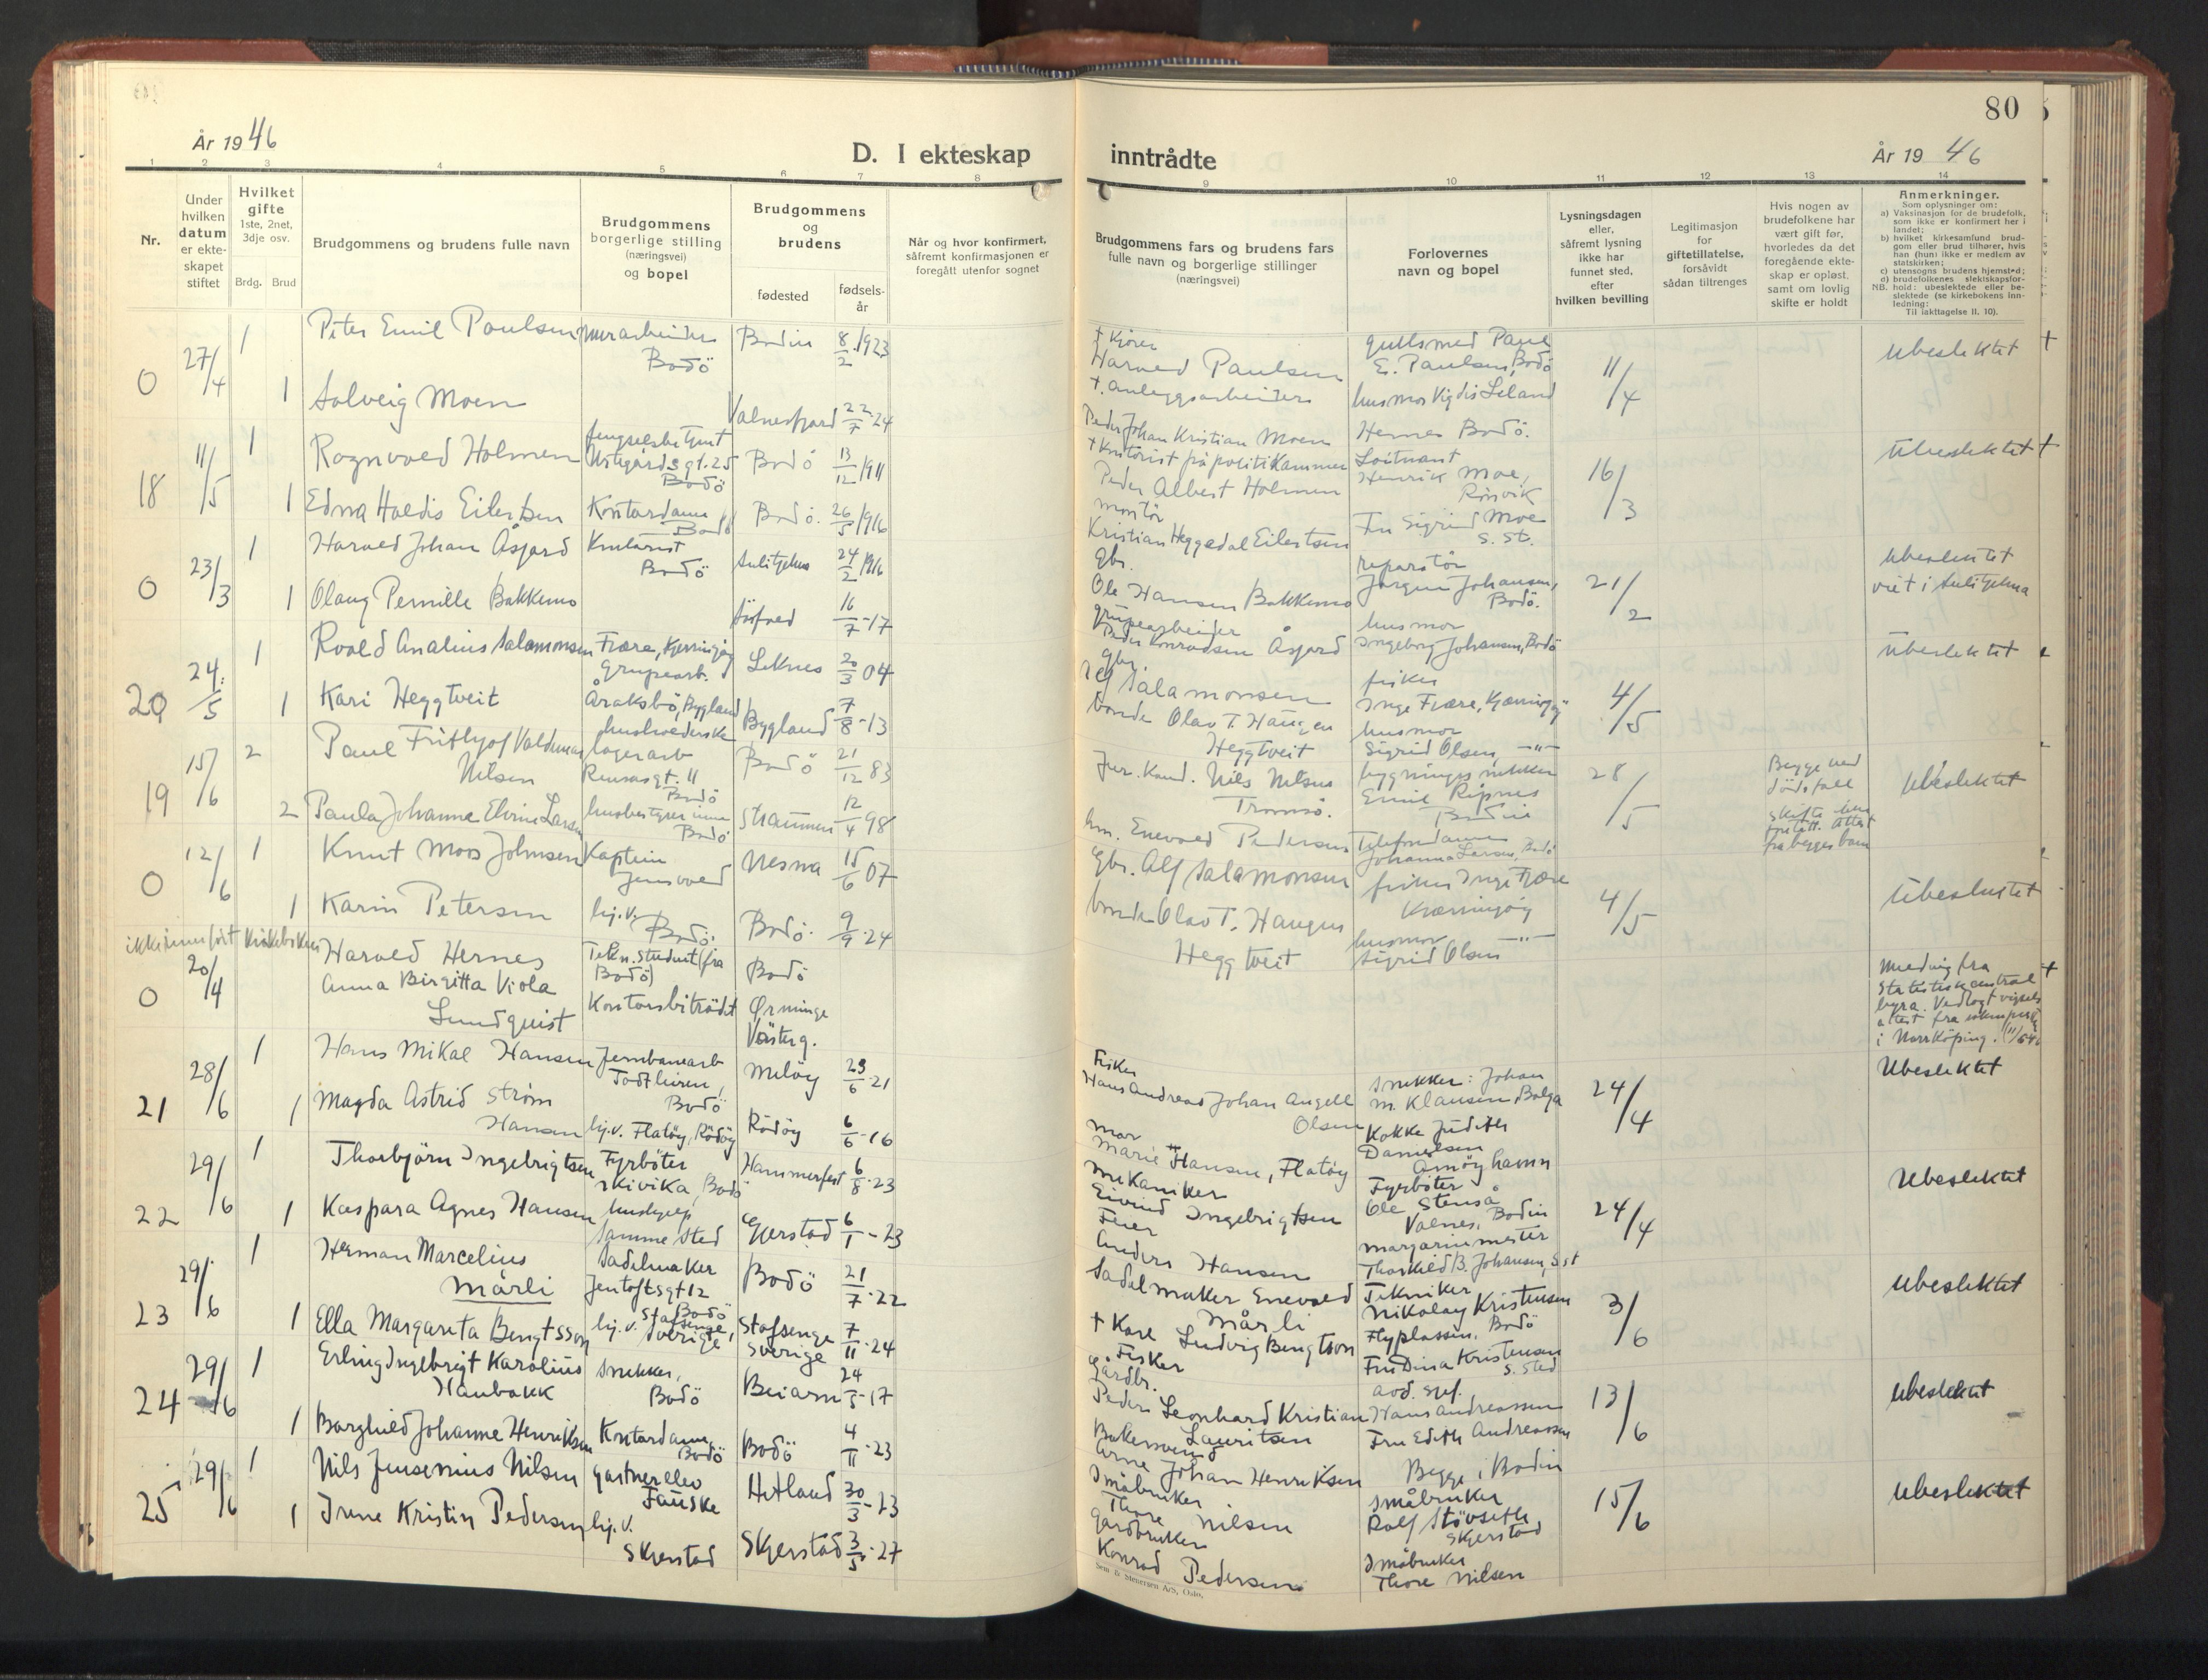 År 1946
D. I ekteskap
1 2 3 4 5 6 7 8
Nr.
Under
hvilken
datum
er ekte-
skapet
stiftet
Hvilket
gifte
1ste, 2net,
3dje osv.
Brdg. Brud
Brudgommens og brudens fulle navn
Brudgommens
borgerlige stilling
(næringsvei)
og bopel
Brudgommens
og
brudens
fødested
fødsels-
år
Når og hvor konfirmert,
såfremt konfirmasjonen er
foregått utenfor sognet
0 27/4 1 Peter Emil Paulsen
Bodö
Bodin 8/2 1923
1 Solveig Moen
Valnesfjord 22/7-24
18 11/5 1 Ragnvald Holmen
Bodö
Bodö 13/12 1911
1 Edna Haldis Eilertsen
Kontordame
Bodö
Bodö. 26/5 1916
0 23/3 1 Harald Johan Åsjord
Kontorist
Bodö
Sulitjelma 24/2 1916
1 Olaug Pernille Bakkemo
16/7-17
20 24/5 1 Roald Analius Salamonsen
Fjære, Kjerringöy
Gruvearb.
Leknes 20/3 04
1 Kari Heggtveit
Araksbö, Bygland
Bygland 7/8-13
19 15/6 2 Paul Frithjof Valdemar
Nilsen
lagerarb
Rensasgt. 11
Bodö
Bodö 21/12 83
2 Paula Johanne Elvine Larsen
husbestyrerinne
Bodö
Straumen 12/4-98
0 12/6 1 Knut Moos Johnsen
Kaptein
Jensvoll
Nesna 15/6 07
1 Karin Petersen
hj.v.
Bodö.
Bodö. 9/9-24
ikke innfört kirkeboken
0 20/4 Harald Hernes
Tekn. student (fra
Bodö)
Bodö
Anna Birgitta Viola
Lundquist
Kontorsbiträdet
Örminge
Västerg.
21 28/6 1 Hans Mikal Hansen
Jernbanearb
Bodö
Melöy 23/6-21
1 Magda Astrid Strøm
Hansen
hj.v. Flatöy, Rödöy
Rödöy 6/6-16
22 29/6 1 Thorbjörn Ingebrigtsen
Fyrböter
Skivika, Bodö
Hammerfest 6/8-23
1 Kaspara Agnes Hansen
hushjelp
samme sted
Gjerstad 6/1-23
23 29/6 1 Herman Marcelius
Mårli
Sadelmaker
Jentoftsgt 12
Bodö
Bodö 21/7-22
1 Ella Margareta Bengtsson
hj.v. Stafsenge,
Sverige
Stafsenge
Sverige 7/11-24
24 29/6 1 Erling Ingebrigt Karolius
Haubakk
Snekker,
Bodö
Beiarn 24/5-17
1 Borghild Johanne Henriksen
Kontordame
Bodö
Bodö 4/11-23
25 29/6 1 Nils Jensenius Nilsen
gartnerelev
Fauske
Hetland 30/3-23
1 Irene Kristin Pedersen
hj.v.
Skjerstad
Skjerstad 3/5-27
80
inntrådte
År 1946
9 10 11 12 13 14
Brudgommens fars og brudens fars
fulle navn og borgerlige stillinger
(næringsvei)
Forlovernes
navn og bopel
Lysningsdagen
eller,
såfremt lysning
ikke har
funnet sted,
efter
hvilken bevilling
Legitimasjon
for
giftetillatelse,
forsåvidt
sådan tiltrenges
Hvis nogen av
brudefolkene har
vært gift før,
hvorledes da det
foregående ekte-
skap er opløst,
samt om lovlig
skifte er holdt
Anmerkninger.
Som oplysninger om:
a) Vaksinasjon for de brudefolk,
som ikke er konfirmert her i
landet;
b) hvilket kirkesamfund brud-
gom eller brud tilhører, hvis
han (hun) ikke er medlem av
statskirken;
c) utensogns brudens hjemsted;
d) brudefolkenes slektskapsfor-
NB. hold: ubeslektede eller be-
slektede (se kirkebokens inn-
ledning:
Til iakttagelse II. 10).
+ Kjörer
Harald Paulsen
gullsmed Paul
E. Paulsen, Bodö
11/4
Ubeslektet +
+ anleggsarbeider
Peder Johan Kristian Moen
husmor Vigdis Leland
Hernes Bodö.
+ Kontorist på politikammer
Peder Albert Holmen
Löitnant
Henrik Moe,
Rönvik
16/3
Ubeslektet +
montör
Kristian Heggedal Eilertsen
Fru Sigrid Moe
s. st.
gbr.
Ole Hansen Bakkemo
reparatör
Jörgen Johansen,
Bodö.
21/2
Ubeslektet
viet i Sulitjelma
gruvearbeider
Peder Konradsen Åsjord
husmor
Ingeborg Johansen, Bodö
gbr.
Alf Salamonsen
fisker
Inge Fjære, Kjærringöy
4/5
Ubeslektet
bonde Olav T. Haugen
Heggtveit
husmor
Sigrid Olsen —"—
Jur. Kand. Nils Nilsen
Tromsö.
bygningssnekker
Emil Ripnes
Bodin
28/5
Begge ved
dödsfall
Ubeslektet
Enevold Pedersen
Telefondame
Johanna Larsen, Bodö
gbr. Alf Salamonsen
fisker Inge Fjære
Kjærringöy
4/5
Ubeslektet
bonde Olav T. Haugen
Heggtveit
husmor —"—
Sigrid Olsen
Melding fra +
Statistisk sentral
byrå. Vedlagt vigsels
attest fra
i Norrköping.
Fisker
Hans Andreas Johan Angell
Olsen
Snekker: Johan
M. Klausen, Bolga
24/4
Ubeslektet
mor
Marie Hansen, Flatöy
Kokke Judith
Danielsen
Amöyhamn
mekaniker
Eivind Ingebrigtsen
Fyrböter
Ole Stenså
Valnes, Bodin
24/4
Ubeslektet
Feier
Anders Hansen
margarinmester
Thorkild B. Johansen, s.st
Sadelmaker Enevold
Mårli
Tekniker
Nikolay Kristensen
Flyplassen, Bodö
3/6
Ubeslektet
+ Karl Ludvig Bengtson
Fisker
Fru Dina Kristensen
s. sted
Gårdbr.
Peder Leonhard Kristian
Lauritsen
Hans Andreassen
13/6
Ubeslektet
Bakersvend
Arne Johan Henriksen
Fru Edith Andreassen
Begge i Bodin
Småbruker
Thore Nilsen
småbruker
Rolf Stövseth
Skjerstad
15/6
Ubeslektet
Gårdbruker
Konrad Pedersen
Småbruker
Thore Nilsen
Sem & Stenersen A/S, Oslo.